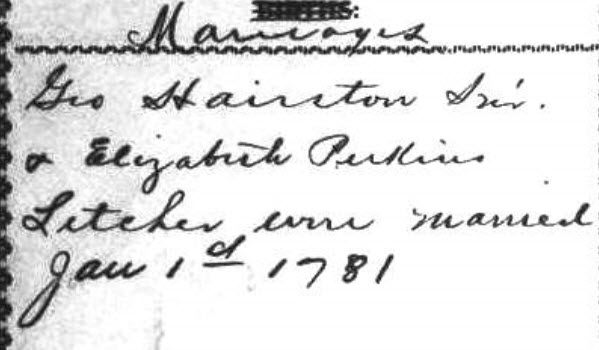 Marriages
Geo Hairston Sr.
& Elizabeth Perkins
Letcher were married
Jan 1d 1781